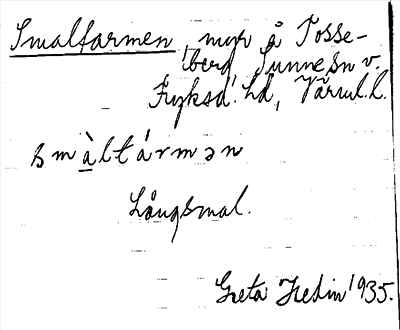 Smaltarmen, myr å Tosse-
berg, Sunne sn v.
Fryksd. hd, Värml. l.
smàltármən
Långsmal.
Greta Hedin 1935.